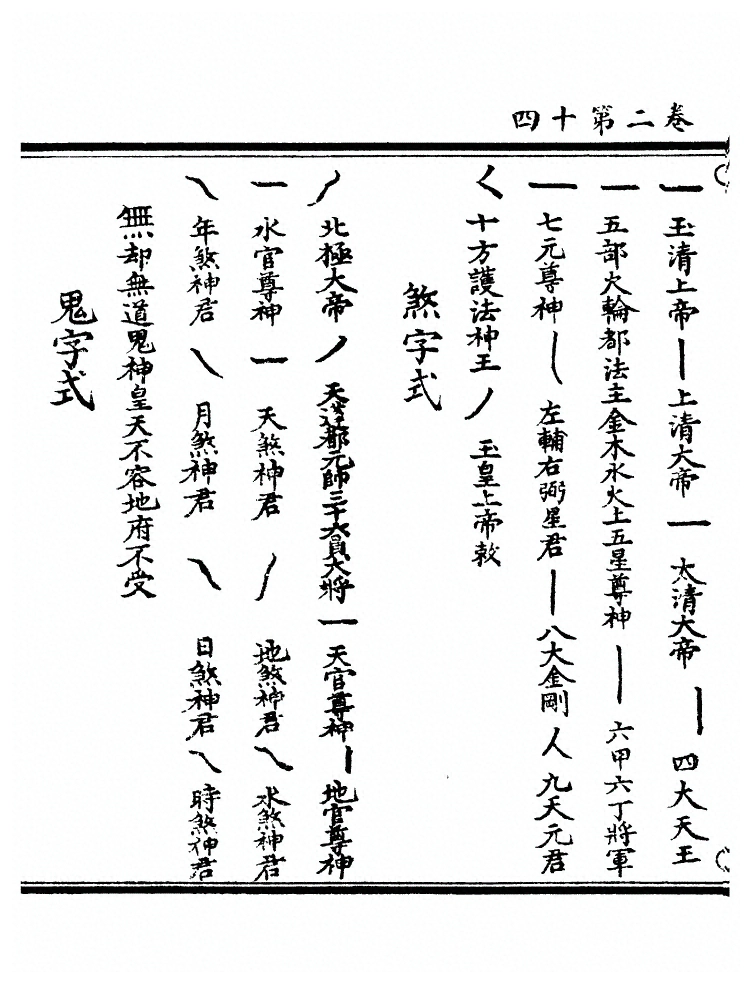 卷二第十四
一 玉清上帝 丨 上清大帝 一 太清大帝 丨 四大天王
一 五部火輪都法主金木水火土五星尊神 丨 六甲六丁將軍
一 七元尊神 丨 左輔右弼星君 丨 八大金剛 人 九天元君
く 十方護法神王 丿 玉皇上帝敕
煞字式
丿 北極大帝 丿 天蓬都元帥三十六員大將 一 天官尊神 丨 地官尊神
一 水官尊神 一 天煞神君 丿 地煞神君 ㇏ 水煞神君
㇏ 年煞神君 ㇏ 月煞神君 ㇏ 日煞神君 ㇏ 時煞神君
無却無道鬼神皇天不容地府不受
鬼字式